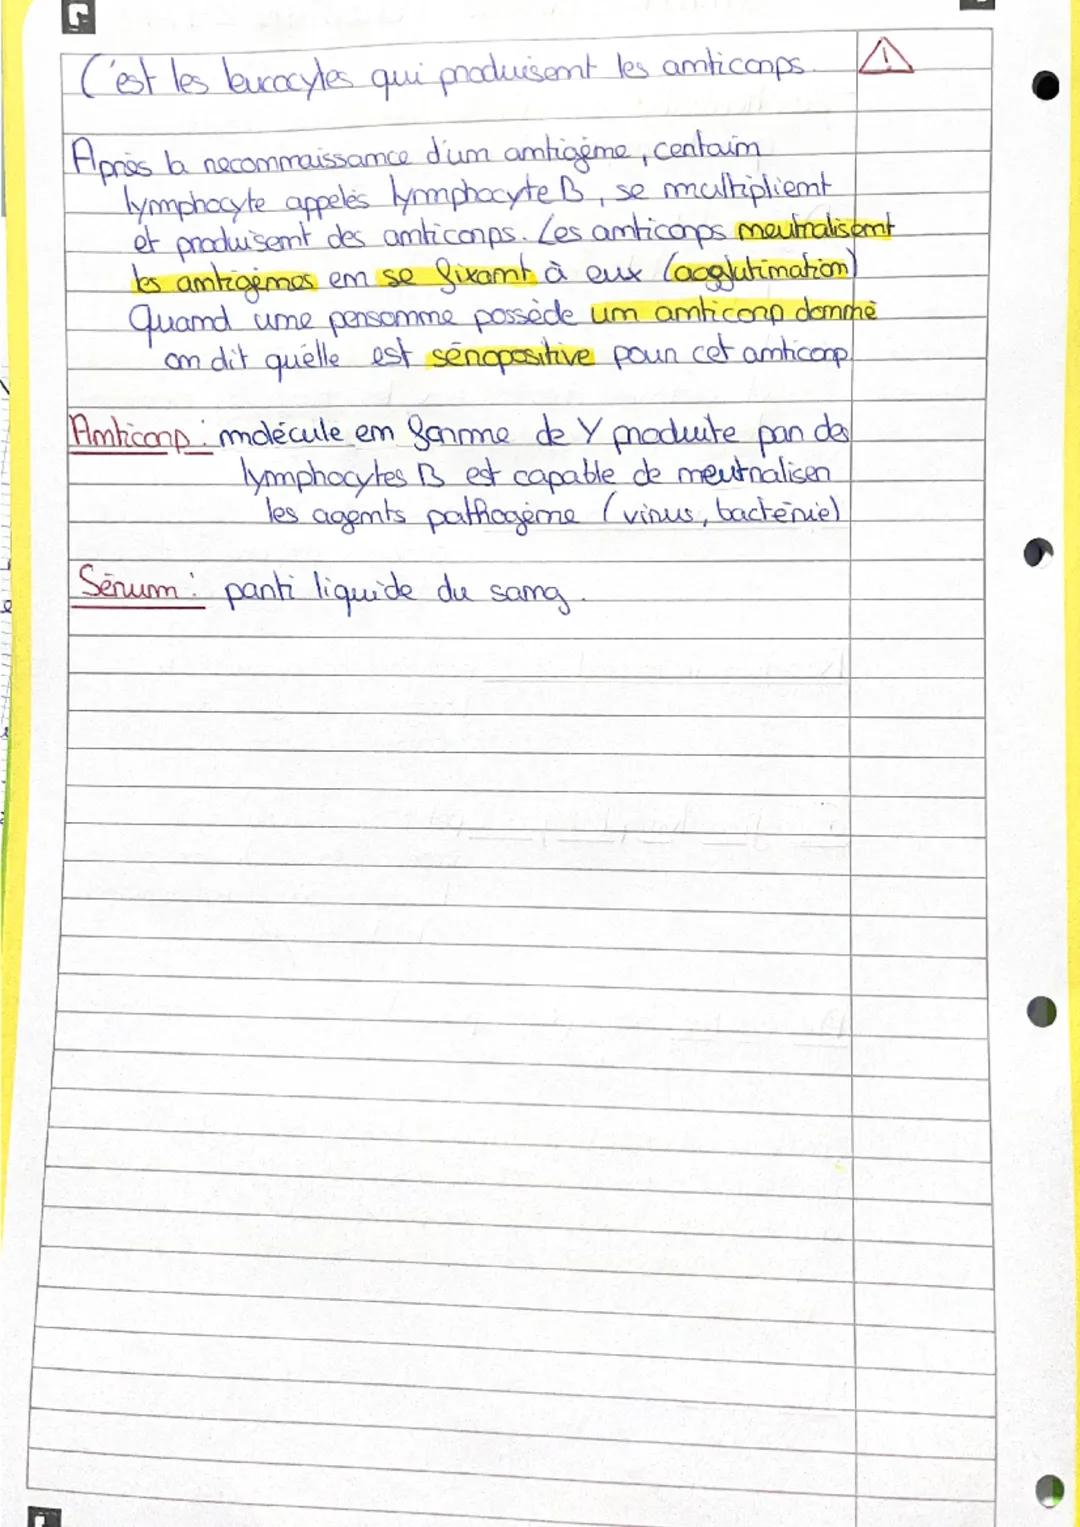 C'est les leucocytes qui produisent les anticorps.
Après la reconnaissance d'un antigène, certain
lymphocyte appelés lymphocyte B, se multiplient
et produisent des anticorps. Les anticorps neutralisent
les antigènes en se fixant à eux (agglutination)
Quand une personne possède un anticorp donné
on dit quélle est séropositive pour cet anticorp
Anticorp : molécule en forme de Y produite par des
lymphocytes B est capable de neutraliser
les agents pathogène (virus, bactérie)
Sérum : parti liquide du sang.